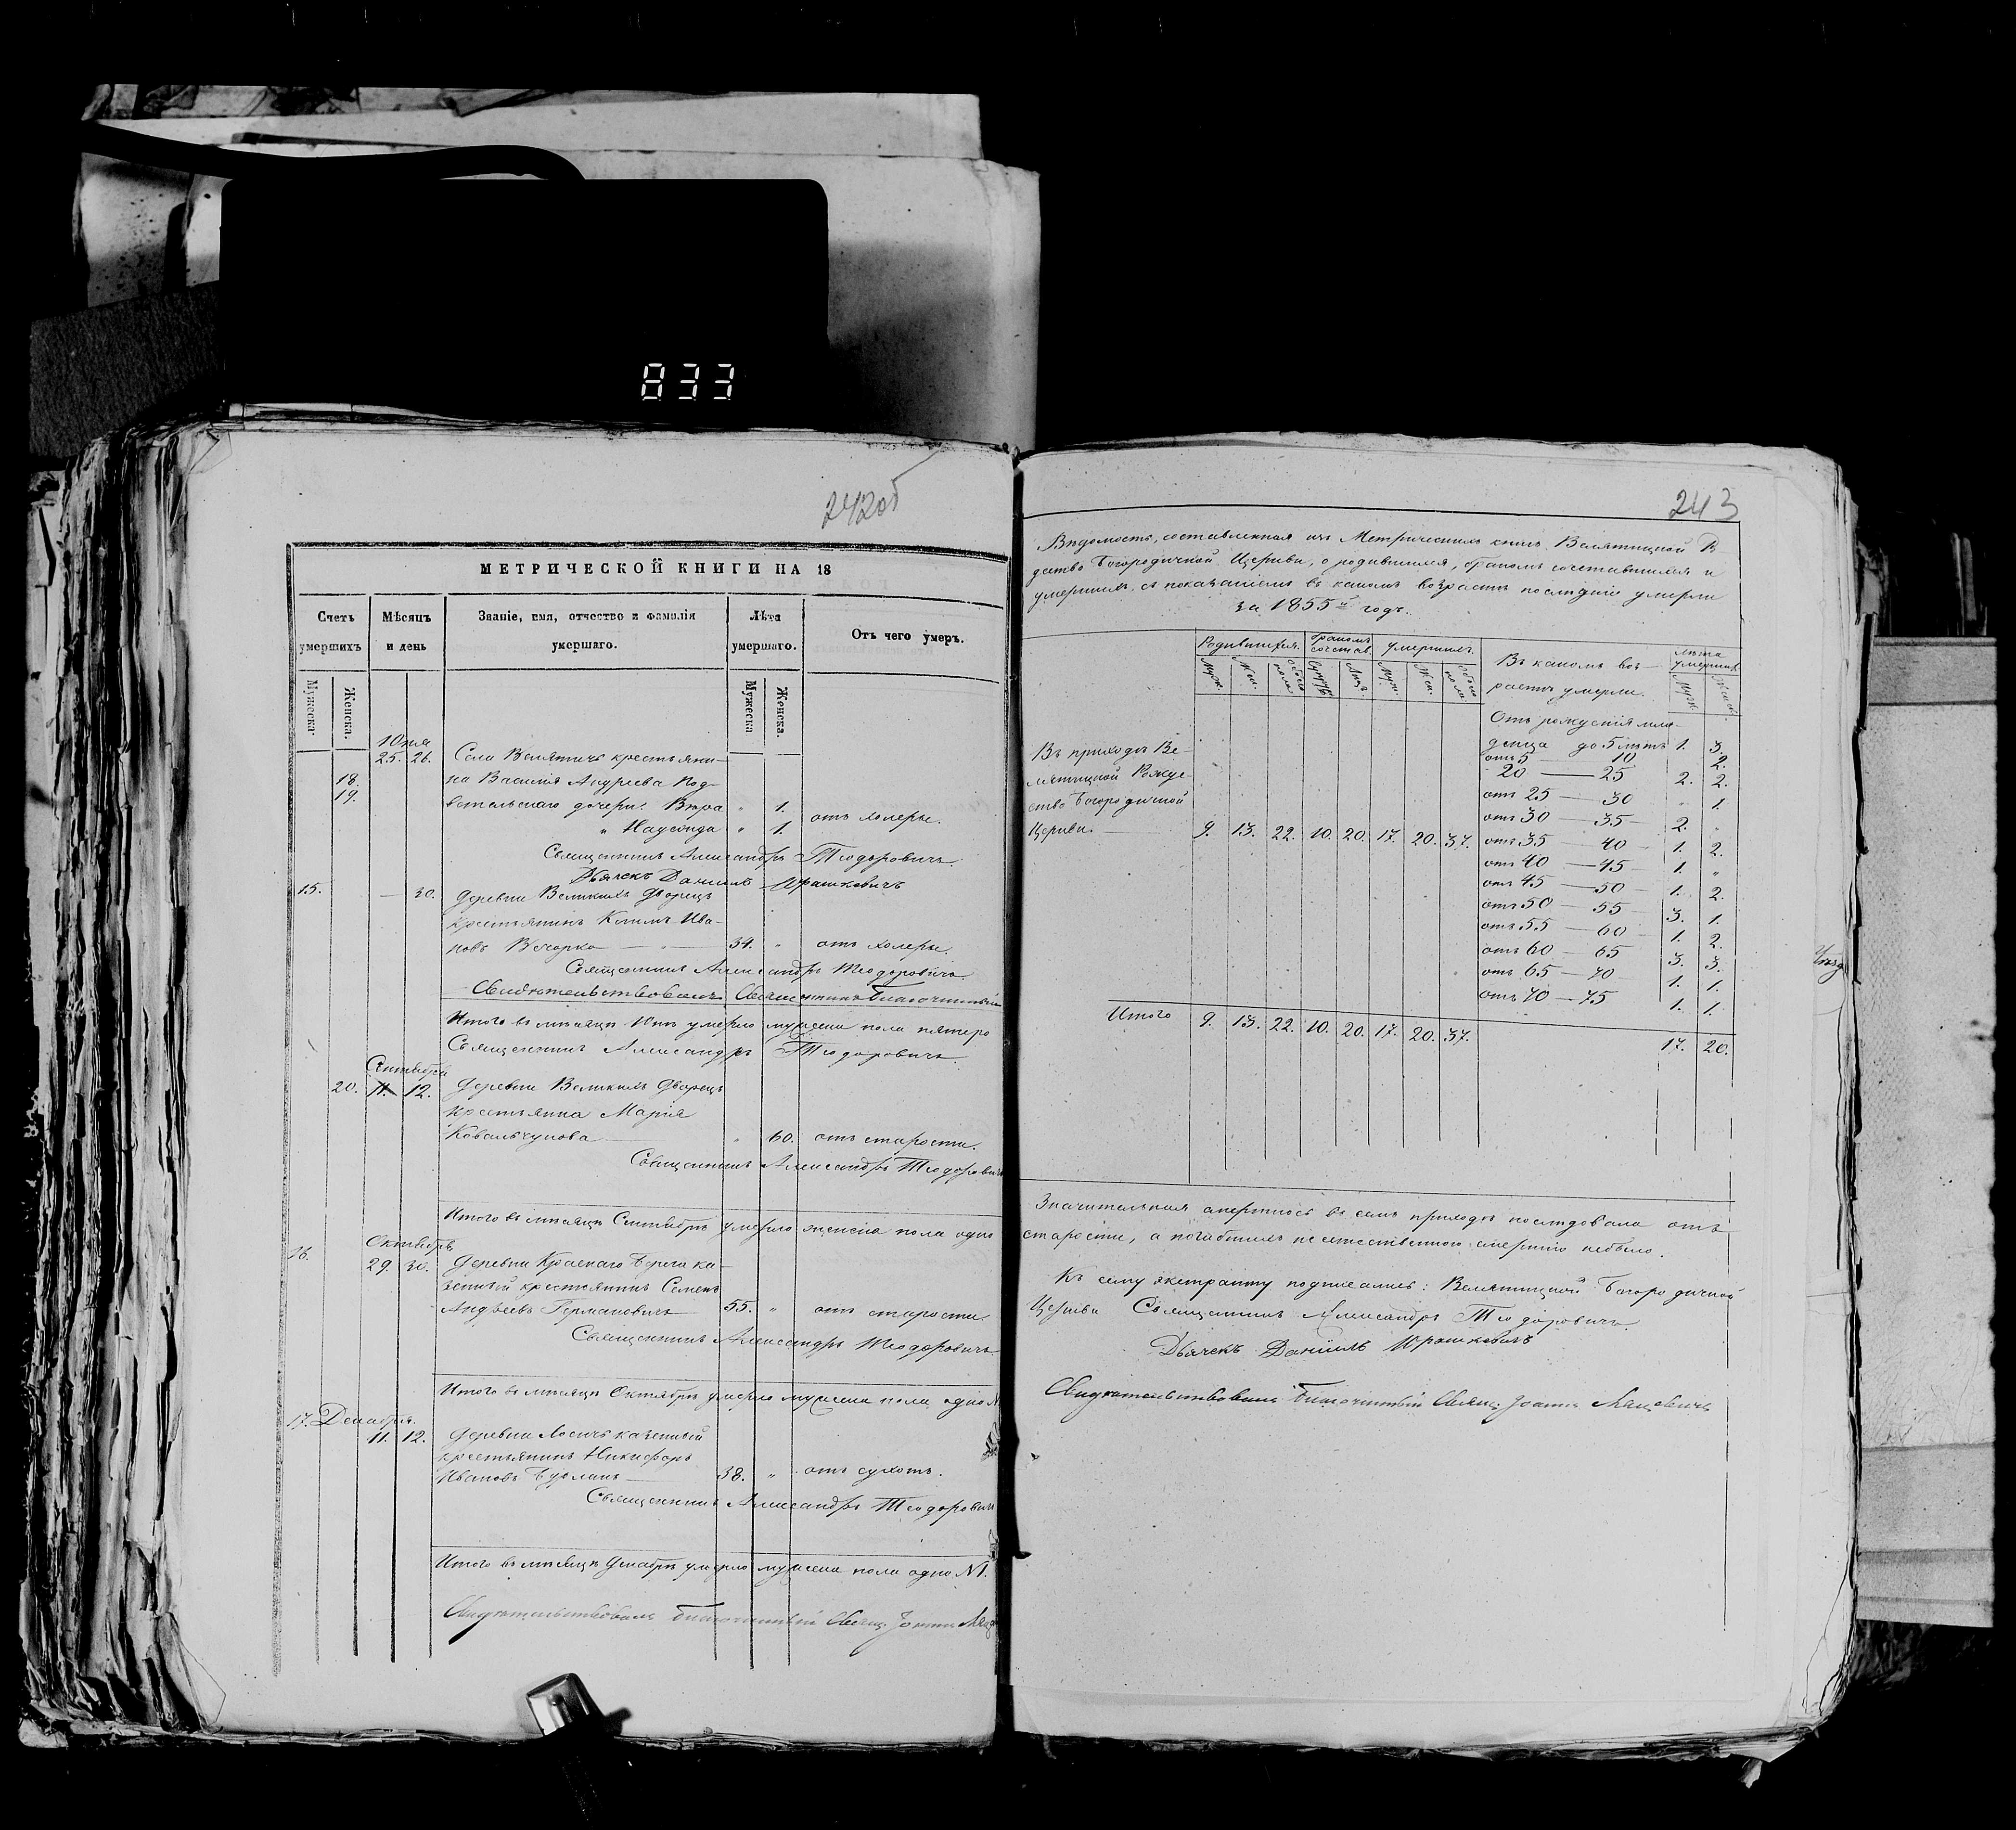 833
242об
МЕТРИЧЕСКОЙ КНИГИ НА 18
Счетъ умершихъ
Мѣсяцъ и день
Званіе, имя, отчество и фамилія умершаго.
Лѣта умершаго.
Отъ чего умеръ.
Мужеска.
Женска.
Мужеска
Женска.
Юля
25. 26. Села Велятичъ крестьяни-
18. на Василія Андреева Под-
19. дочери: Вѣра " 1.
" Надежда " 1. отъ холеры.
Священникъ Александръ Теодоровичъ.
Дьячекъ Даніилъ Юрашкевичъ
15. — 30. Деревни Великихъ Дворецъ
крестьянинъ Климъ Ива-
новъ Вечорко — 34. " отъ холеры.
Священникъ Александръ Теодоровичъ
Свидѣтельствовалъ Священникъ Благочинный
Итого въ мѣсяцѣ Юлѣ умерло мужеска пола пятеро
Священникъ Александръ Теодоровичъ.
Сентября
20. 11. 12. Деревни Великихъ Дворецъ
крестьянка Марія
Ковальчукова — " 60. отъ старости.
Священникъ Александръ Теодоровичъ
Итого въ мѣсяцѣ Сентябрѣ умерло женска пола одно
Октябрь
16. 29. 30. Деревни Краснаго Берега ка-
зенный крестьянинъ Семенъ
Андреевъ Германовичъ 55. " отъ старости.
Священникъ Александръ Теодоровичъ
Итого въ мѣсяцѣ Октябрѣ умерло мужеска пола одно
17. Декабря.
11. 12. Деревни Лосичъ казенный
крестьянинъ Никифоръ
Ивановъ — 38. " отъ сухотъ.
Священникъ Александръ Теодоровичъ
Итого въ мѣсяцѣ Декабрѣ умерло мужеска пола одно №1.
Свидѣтельствовалъ Благочинный Свящ. Іоаннъ
243
Вѣдомость, составленная изъ Метрическихъ книгъ Велятицкой Р-
дество Богородичной Церкви, о родившихся, бракомъ сочетавшихся и
умершихъ, съ показаніемъ въ какомъ возрастѣ послѣдніе умерли
за 1855й годъ.
Родившихся.
бракомъ сочетав.
умершихъ.
Въ какомъ воз-
растѣ умерли.
лѣта умершихъ
Муж. Жен. обоего пола Муж. Жен. обоего пола
Муж. Женск.
Отъ рожденія мла-
денца до 5 лѣтъ 1. 3.
отъ 5 — 10 2.
20 — 25 2. 2.
отъ 25 — 30 " 1.
отъ 30 — 35 2. "
отъ 35 — 40 1. 2.
отъ 40 — 45 1. "
отъ 45 — 50 1. 2.
отъ 50 — 55 3. 1.
отъ 55 — 60 1. 2.
отъ 60 — 65 3. 3.
отъ 65 — 70 1. 1.
отъ 70 — 75 1. 1.
17. 20.
Въ приходѣ Ве-
лятицкой Рожде-
ство Богородичной
Церкви. 9. 13. 22. 10. 20. 17. 20. 37.
Итого 9. 13. 22. 10. 20. 17. 20. 37.
Значительная смертность въ семъ приходѣ послѣдовала отъ
старости, а погибшихъ неестественною смертію небыло.
Къ сему экстракту подписались: Велятицкой Богородичной
Церкви Священникъ Александръ Теодоровичъ.
Дьячекъ Даніилъ Юрашкевичъ
Свидѣтельствовалъ Благочинный Свящ. Іоаннъ